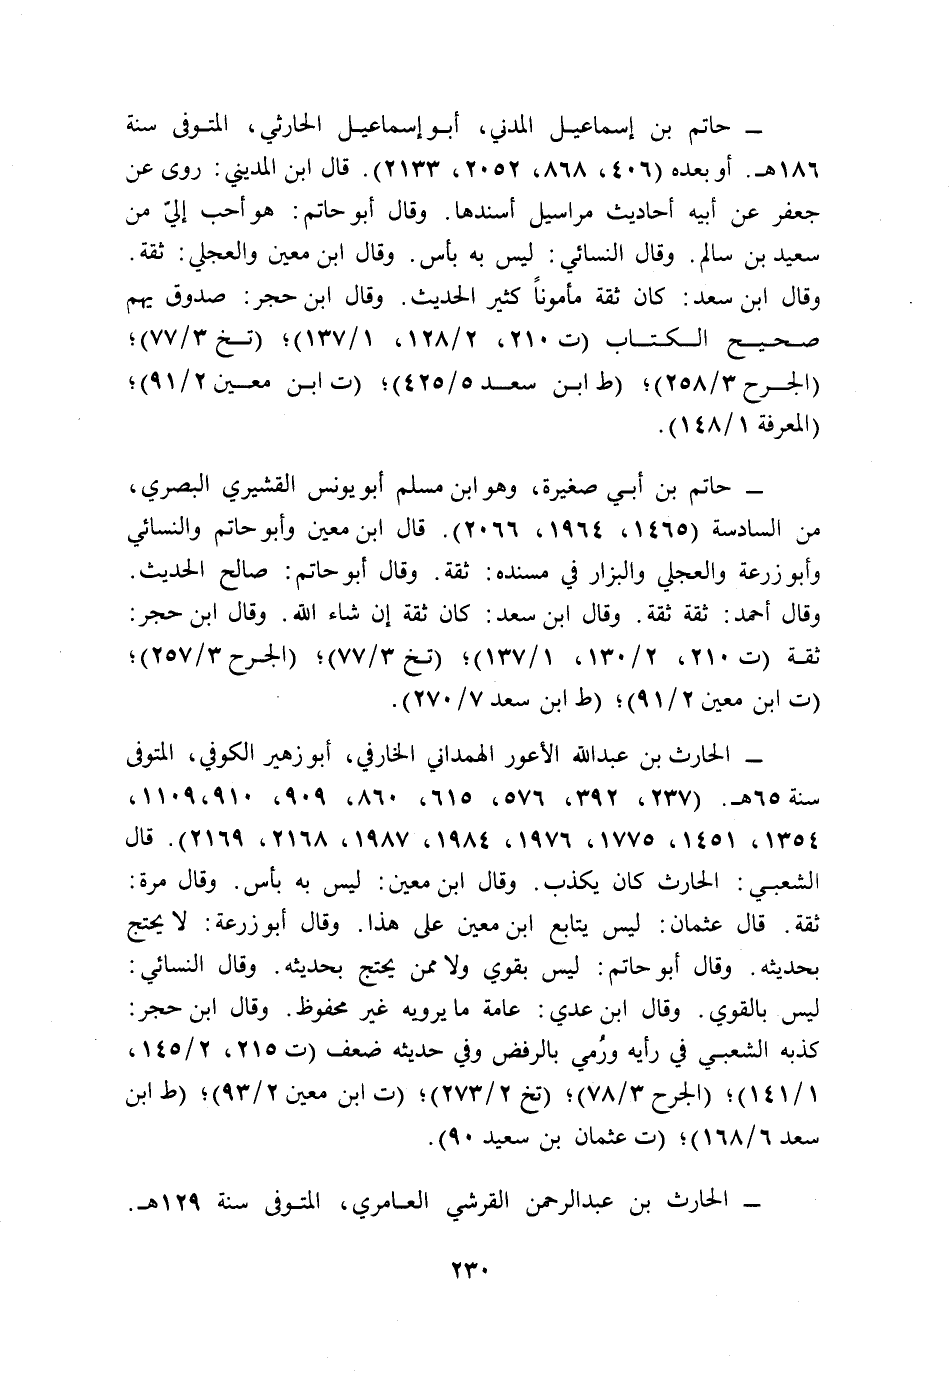 ــ حاتم بن إسماعيل المدني، أبو إسماعيل الحارثي، المتوفى سنة
١٨٦هـ. أو بعده (٤٠٦، ٨٦٨، ٢٠٥٢، ٢١٣٣). قال ابن المديني: روى عن
جعفر عن أبيه أحاديث مراسيل أسندها. وقال أبو حاتم: هو أحب إليّ من
سعيد بن سالم. وقال النسائي: ليس به بأس. وقال ابن معين والعجلي: ثقة.
وقال ابن سعد: كان ثقة مأموناً كثير الحديث. وقال ابن حجر: صدوق يهم
صحيح الكتاب (ت ٢١٠، ١٢٨/٢، ١٣٧/١)؛ (تخ ٧٧/٣)؛
(الجرح ٢٥٨/٣)؛ (ط ابن سعد ٤٢٥/٥)؛ (ت ابن معين ٩١/٢)؛
(المعرفة ١٤٨/١).
ــ حاتم بن أبي صغيرة، وهو ابن مسلم أبو يونس القشيري البصري،
من السادسة (١٤٦٥، ١٩٦٤، ٢٠٦٦). قال ابن معين وأبو حاتم والنسائي
وأبو زرعة والعجلي والبزار في مسنده: ثقة. وقال أبو حاتم: صالح الحديث.
وقال أحمد: ثقة ثقة. وقال ابن سعد: كان ثقة إن شاء الله. وقال ابن حجر:
ثقة (ت ٢١٠، ١٣٠/٢، ١٣٧/١)؛ (تخ ٧٧/٣)؛ (الجرح ٢٥٧/٣)؛
(ت ابن معين ٩١/٢)؛ (ط ابن سعد ٢٧٠/٧).
ــ الحارث بن عبدالله الأعور الهمداني الخارفي، أبو زهير الكوفي، المتوفى
سنة ٦٥هـ. (٢٣٧، ٣٩٢، ٥٧٦، ٦١٥، ٨٦٠، ٩٠٩، ٩١٠، ١١٠٩،
١٣٥٤، ١٤٥١، ١٧٧٥، ١٩٧٦، ١٩٨٤، ١٩٨٧، ٢١٦٨، ٢١٦٩). قال
الشعبي: الحارث كان يكذب. وقال ابن معين: ليس به بأس. وقال مرة:
ثقة. قال عثمان: ليس يتابع ابن معين على هذا. وقال أبو زرعة: لا يحتج
بحديثه. وقال أبو حاتم: ليس بقوي ولا ممن يحتج بحديثه. وقال النسائي:
ليس بالقوي. وقال ابن عدي: عامة ما يرويه غير محفوظ. وقال ابن حجر:
كذبه الشعبي في رأيه ورُمي بالرفض وفي حديثه ضعف (ت ٢١٥، ١٤٥/٢،
١٤١/١)؛ (الجرح ٧٨/٣)؛ (تخ ٢٧٣/٢)؛ (ت ابن معين ٩٣/٢)؛ (ط ابن
سعد ١٦٨/٦)؛ (ت عثمان بن سعيد ٩٠).
ــ الحارث بن عبدالرحمن القرشي العامري، المتوفى سنة ١٢٩هـ.
٢٣٠